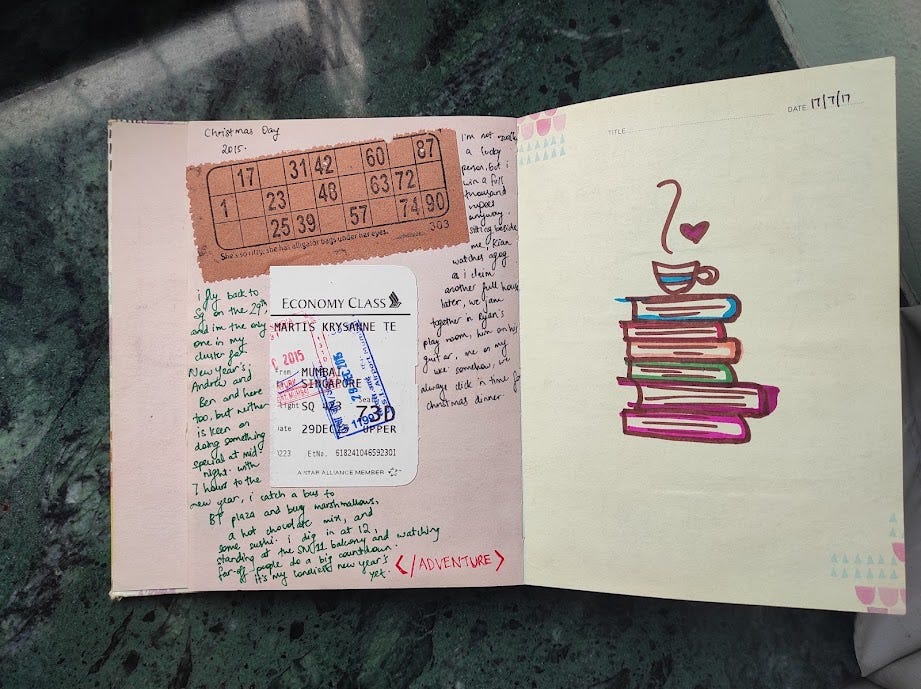 Christmas Day
2015.
17 31 42 60 87
1 23 48 63 72
25 39 57 74 90
303
She's so ritzy, she has alligator bags under her eyes.
I'm not
a lucky
person, but i
win a full
thousand
rupees
anyway.
sitting beside
me, Kian
watches agog
as i claim
another full house
later, we jam
together in Ryan's
play room, him on his
guitar, me on my
uke. somehow, we
always click in time for
christmas dinner.
i fly back to
SG on the 29th,
and i'm the only
one in my
cluster for
New Year's;
Andrew and
Ben and here
too, but neither
is keen on
doing something
special at mid-
night. with
7 hours to the
new year, i catch a bus to
BP plaza and buy marshmallows,
a hot chocolate mix, and
some sushi. i dig in at 12,
standing at the balcony and watching
far-off people do a big countdown.
it's my loneliest new year's
yet.
ECONOMY CLASS
MARTIS KRYSANNE TE
2015
From MUMBAI
SINGAPORE
28 DEC 2015
SQ 423 73D
29DEC UPPER
EtNo. 618241046592301
A STAR ALLIANCE MEMBER
</ADVENTURE>
TITLE
DATE 17/7/17